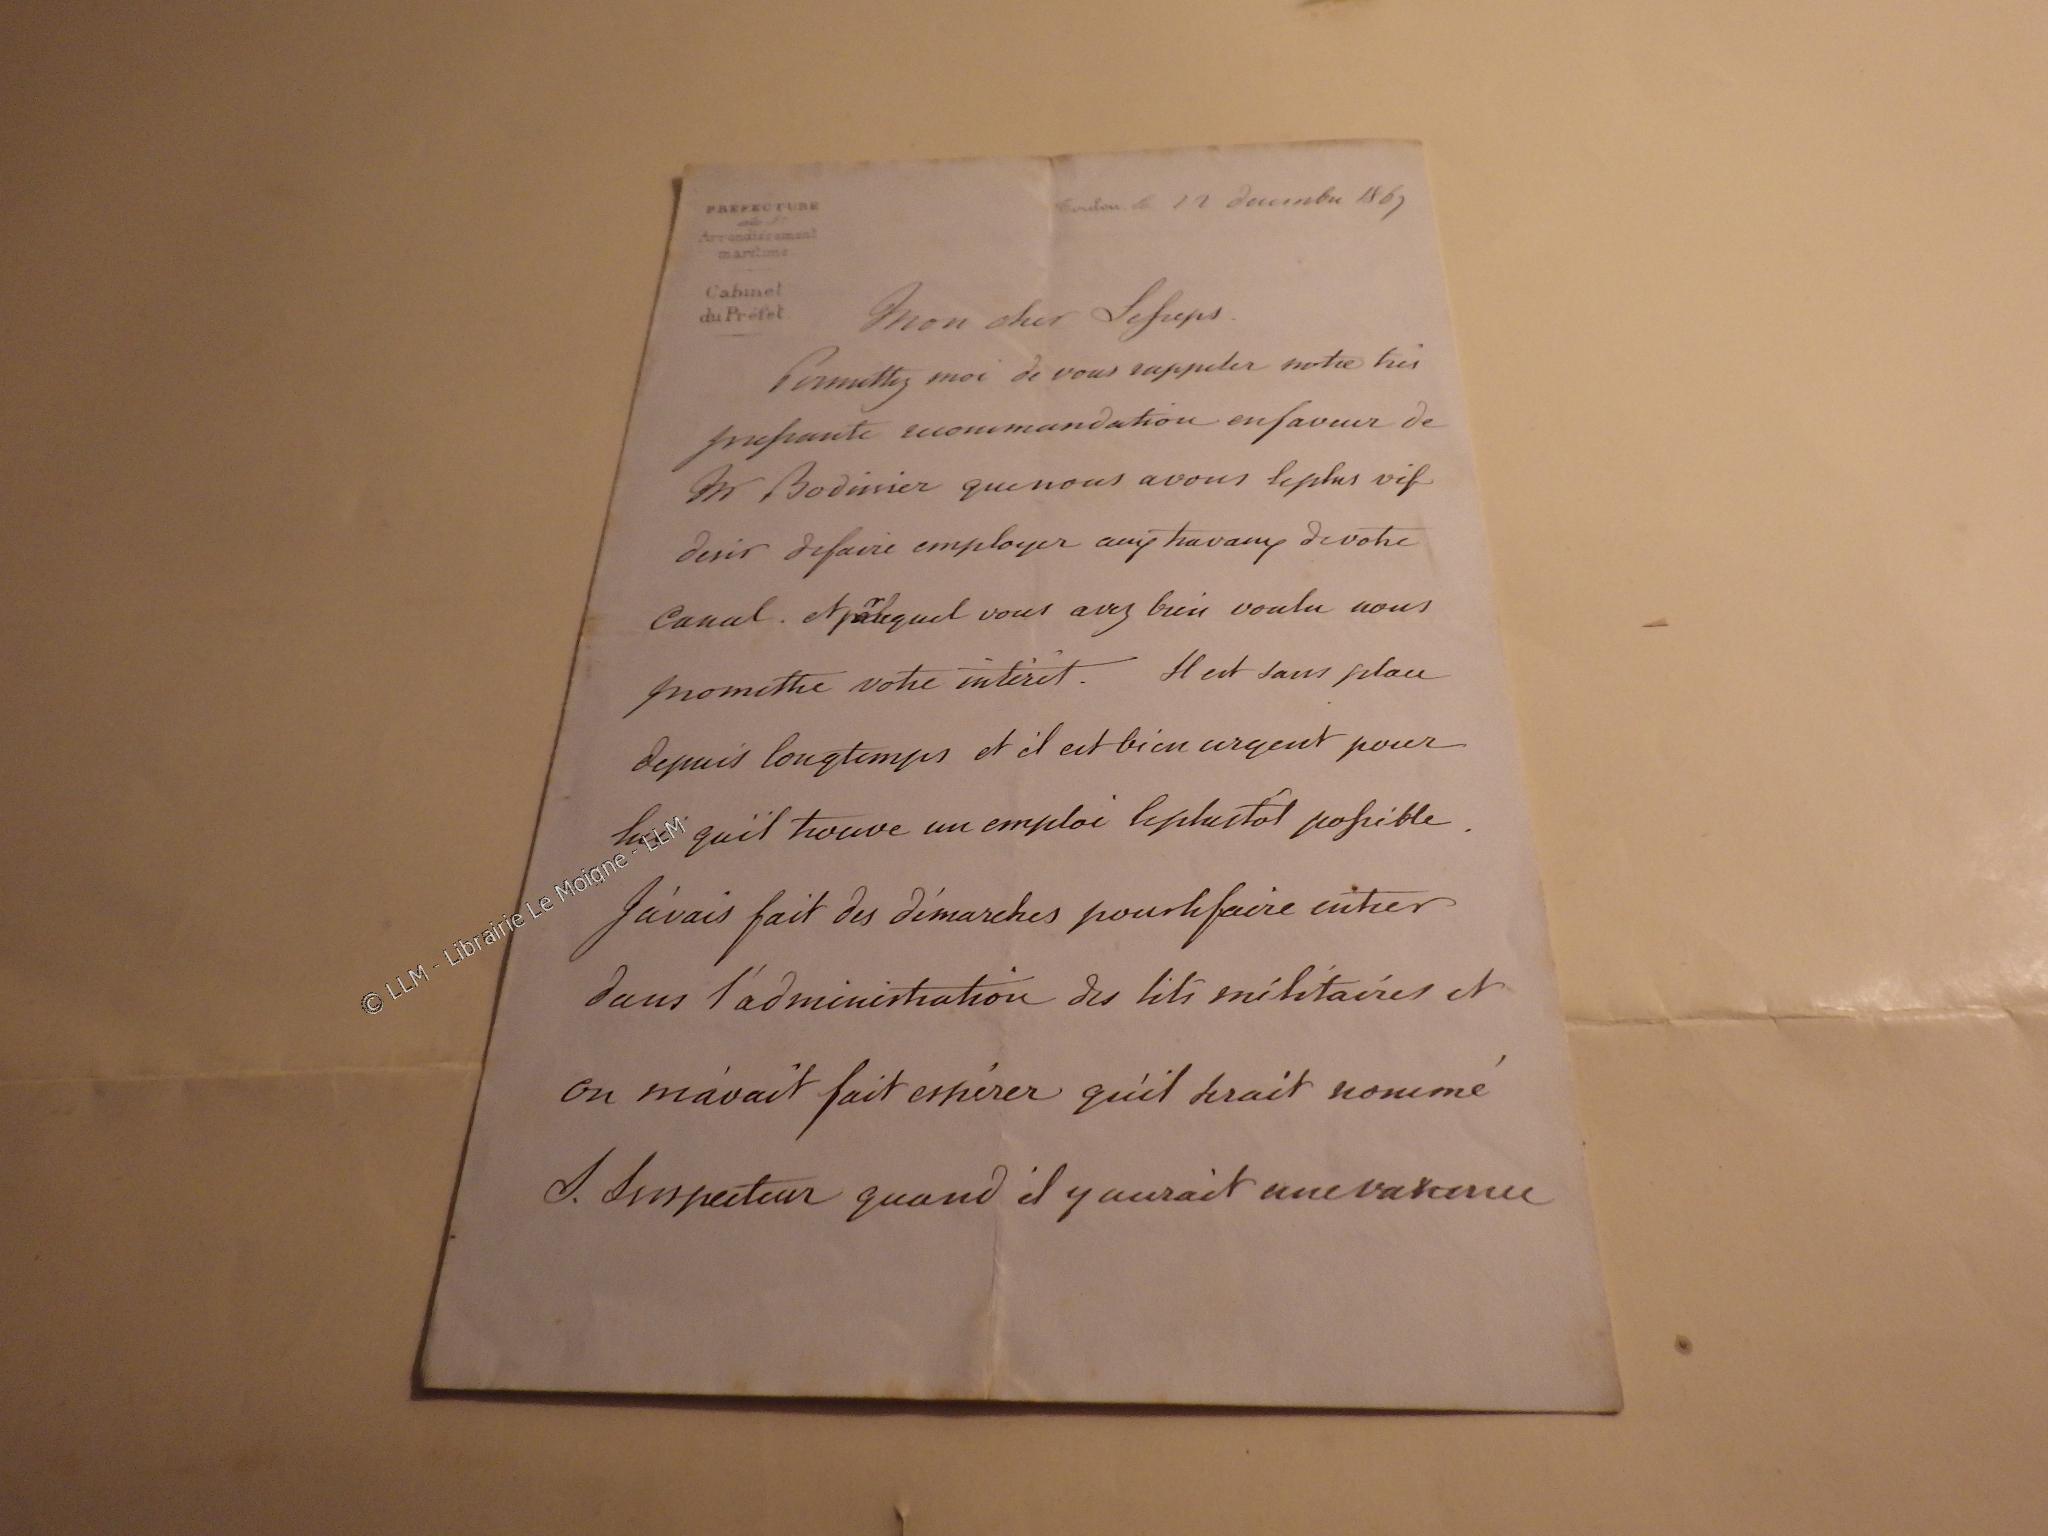 PRÉFECTURE
du 5e
Arrondissement
maritime
Cabinet
du Préfet.
Toulon le 22 decembre 1867
Mon cher Lesseps.
Permettez moi de vous rappeler notre très
pressante recommandation en faveur de
Mr Bodinier que nous avons le plus vif
desir de faire employer aux travaux de votre
Canal. et pour lequel vous avez bien voulu nous
promettre votre intérêt. Il est sans place
depuis longtemps et il est bien urgent pour
lui qu'il trouve un emploi le plustôt possible.
J'avais fait des démarches pour le faire entrer
dans l'administration des lits militaires et
on m'avait fait espérer qu'il serait nommé
S. Inspecteur quand il y aurait une vacance
© LLM - Librairie Le Moigne - LLM